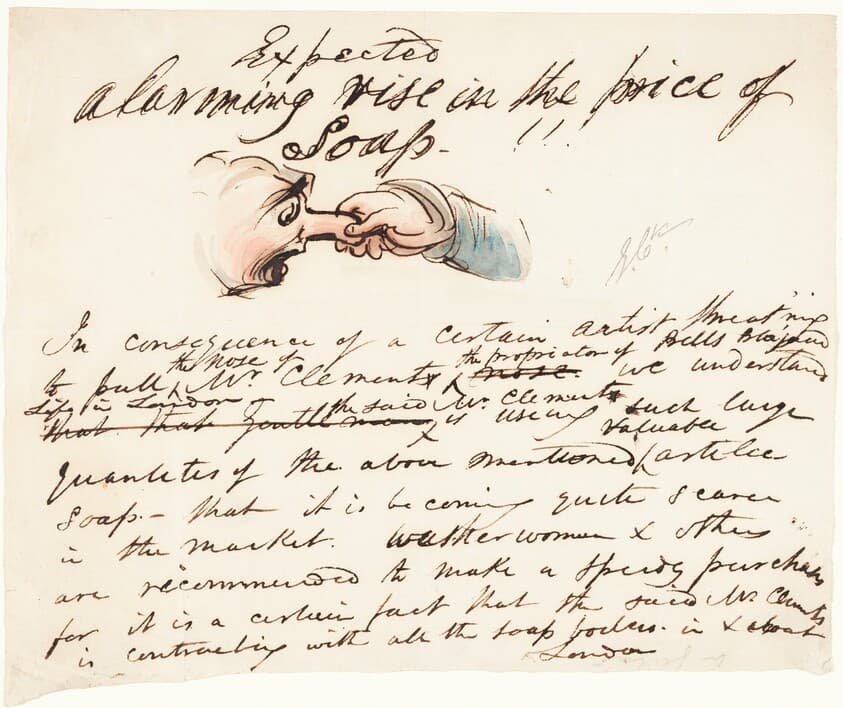 Expected
alarming rise in the price of
Soap- !!!
G. Ck
In consequence of a certain artist threat'ning
to pull the nose of Mr Clements, the propriator of Bells
Life in London - we understand
that that Gentleman the said Mr Clements is using such large
quantetes of the above mentioned valuable article
Soap - that it is becoming quite scarce
in the market. Washerwomen & others
are recommended to make a speedy purchase
for it is a certain fact that the said Mr Clements
is contracting with all the soap boilers in & about
London